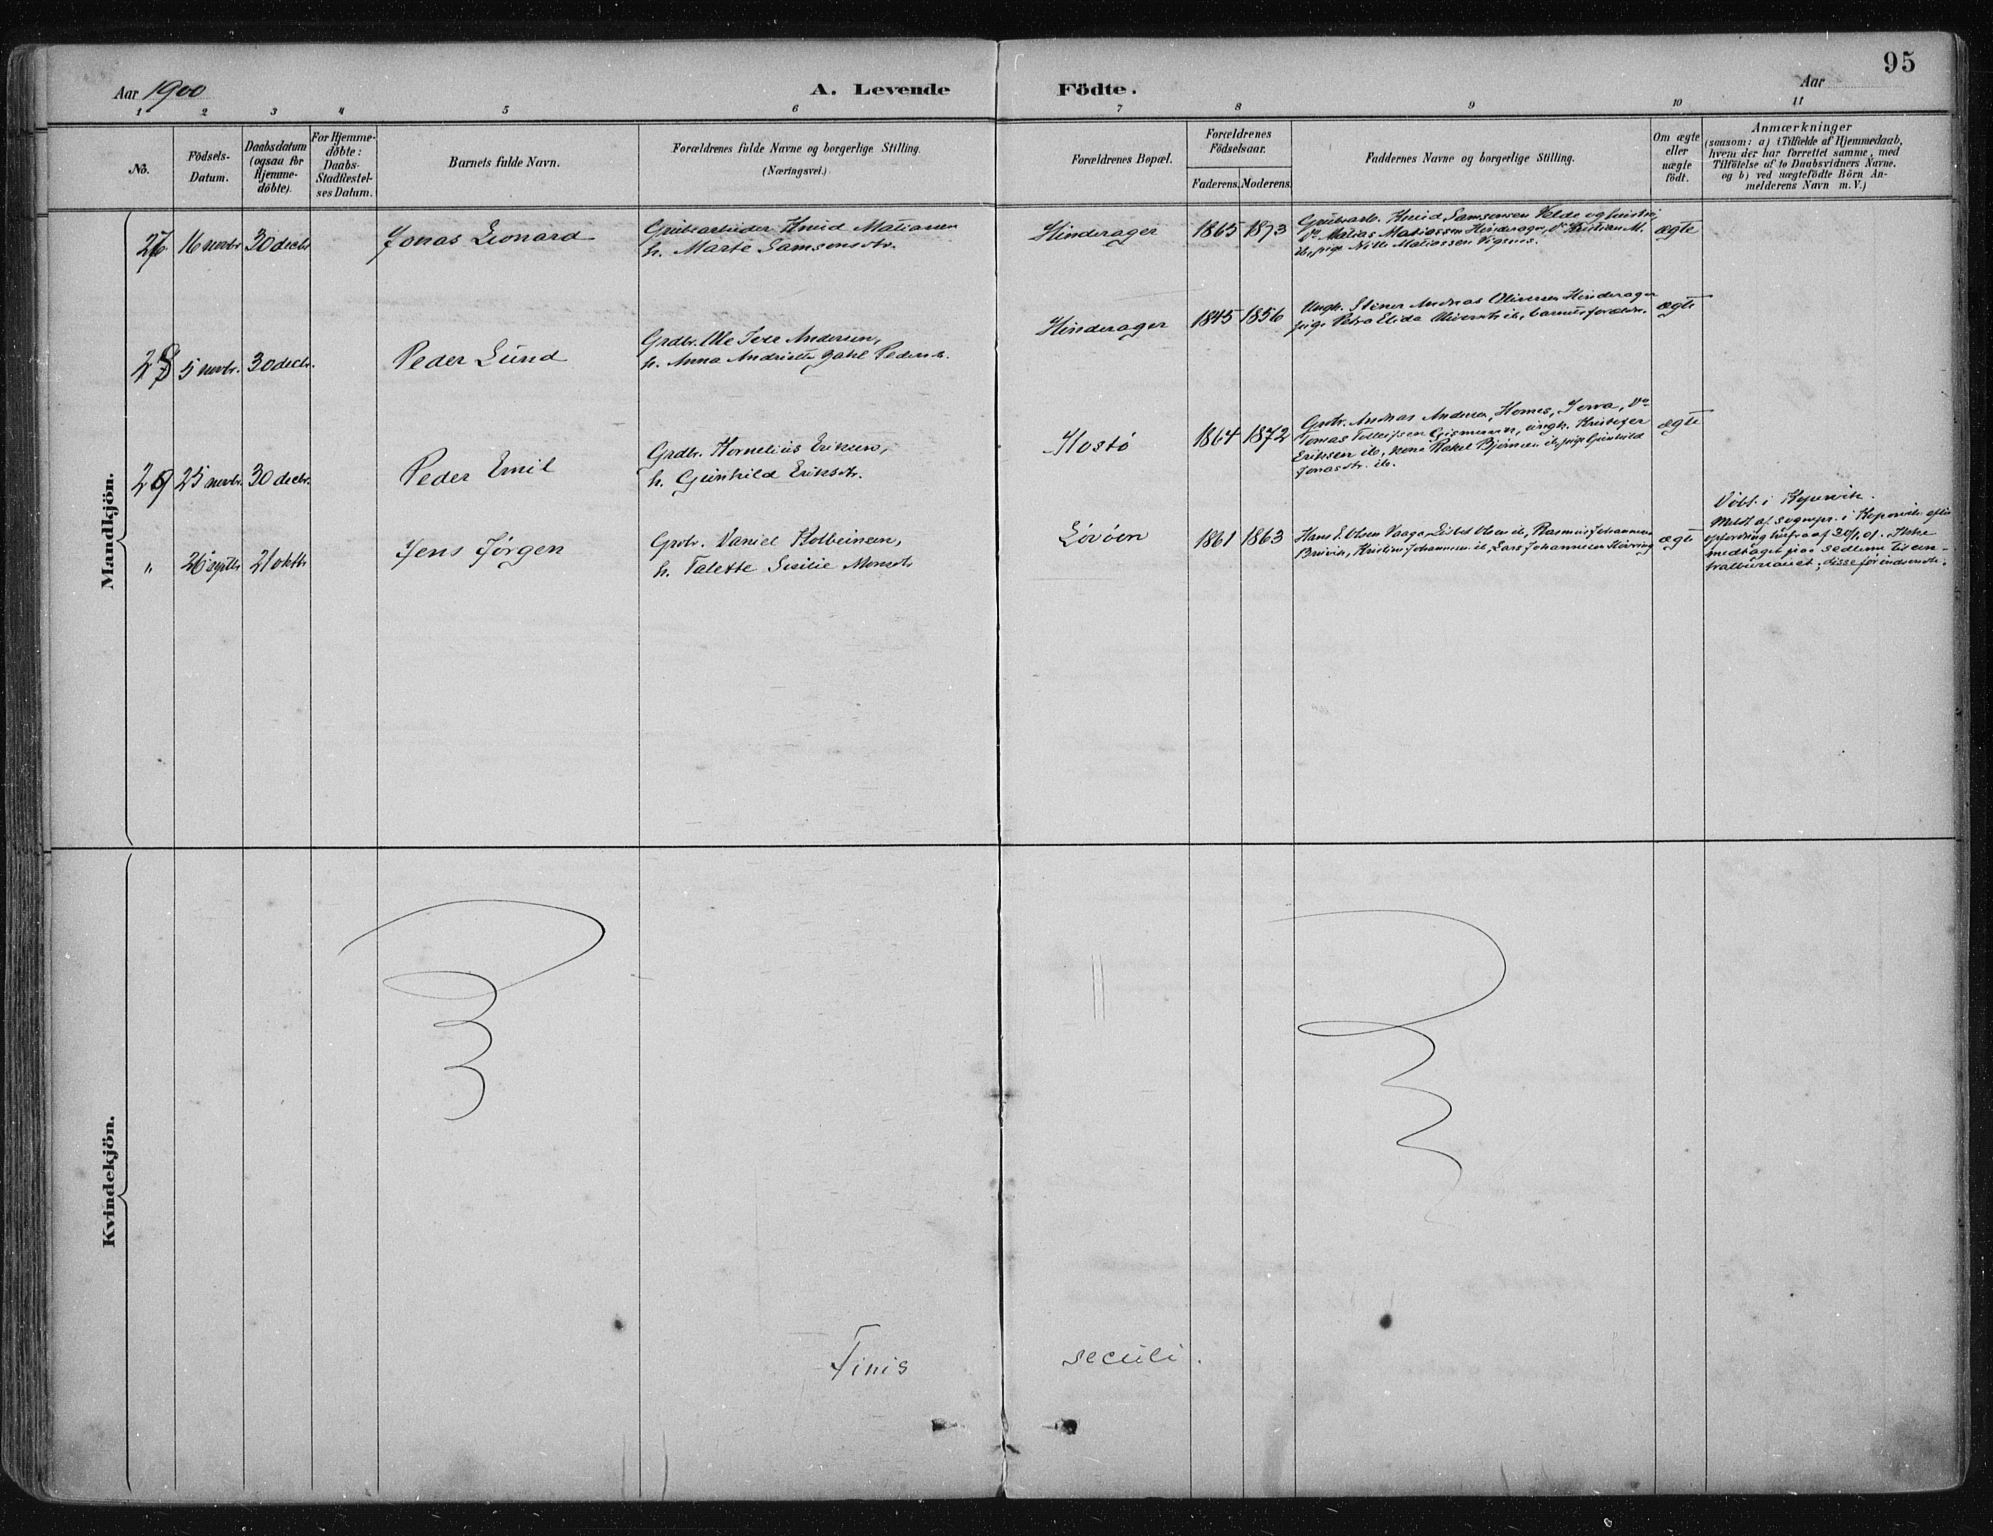 95
Aar 1900
A. Levende Födte.
Aar
1 2 3 4 5 6 7 8 9 10 11
No.
Födsels-
Datum.
Daabsdatum
(ogsaa for
Hjemme-
döbte).
For Hjemme-
döbte:
Daabs-
Stadfæstel-
ses Datum.
Barnets fulde Navn.
Forældrenes fulde Navne og borgerlige Stilling.
(Næringsvei.)
Forældrenes Bopæl.
Forældrenes
Födselsaar.
Faderens. Moderens.
Faddernes Navne og borgerlige Stilling.
Om ægte
eller
uægte
født.
Anmærkninger
(saasom: a) i Tilfælde af Hjemmedaab,
hvem der har forrettet samme, med
Tilföielse af to Daabsvidners Navne.
og b) ved uægtefödte Börn An-
melderens Navn m. V.)
Mandkjön.
27 16 novbr. 30 decbr. Jonas Leonard
Grubearbeider Knud Matiassen
h. Marte Samsonsdtr.
Hinderager 1865 1873
Grubearb. Knud Samsonsen Velde og hustru,
Do Matias Matiassen Hinderager, Do Kristian M.
ib, pige Matiassen Vigsnes.
ægte
28 5 novbr. 30 decbr. Peder Lund
Grdbr. Ole Andersen,
h. Anna Gahl
Hinderager 1845 1856
Ungk. Andreas Oliversen Hinderager
pige Petra Elida ib, barnets forældre.
ægte
29 25 novbr. 30 decbr. Peder Emil
Grdbr. Kornelius Eriksen,
h. Gunhild Eriksdtr.
Hostö 1864 1872
Grdbr. Andreas Andersen, Do
Tomas ungk. Kristofer
Eriksen ib, kone Rakel ib, pige Gunhild
Jonasdtr. ib.
ægte
" 26 septbr. 21 oktbr. Jens Jørgen
Grdbr. Daniel Kolbeinsen,
h. Talette Sicilie Monsdtr.
Lövöen 1861 1863
Hans E. Olsen Vaage, Olsen ib, Rasmus Johannesen
Johannesen ib, Lars Johannesen
ægte
Döbt i Kopervik.
Meldt af sognepr. i Kopervik efter
opfordring af 20/1 01. Ikke
medtaget paa sedlerne til cen-
tralbureauet; disse før indsendte.
Kvindekjön.
Finis seculi.